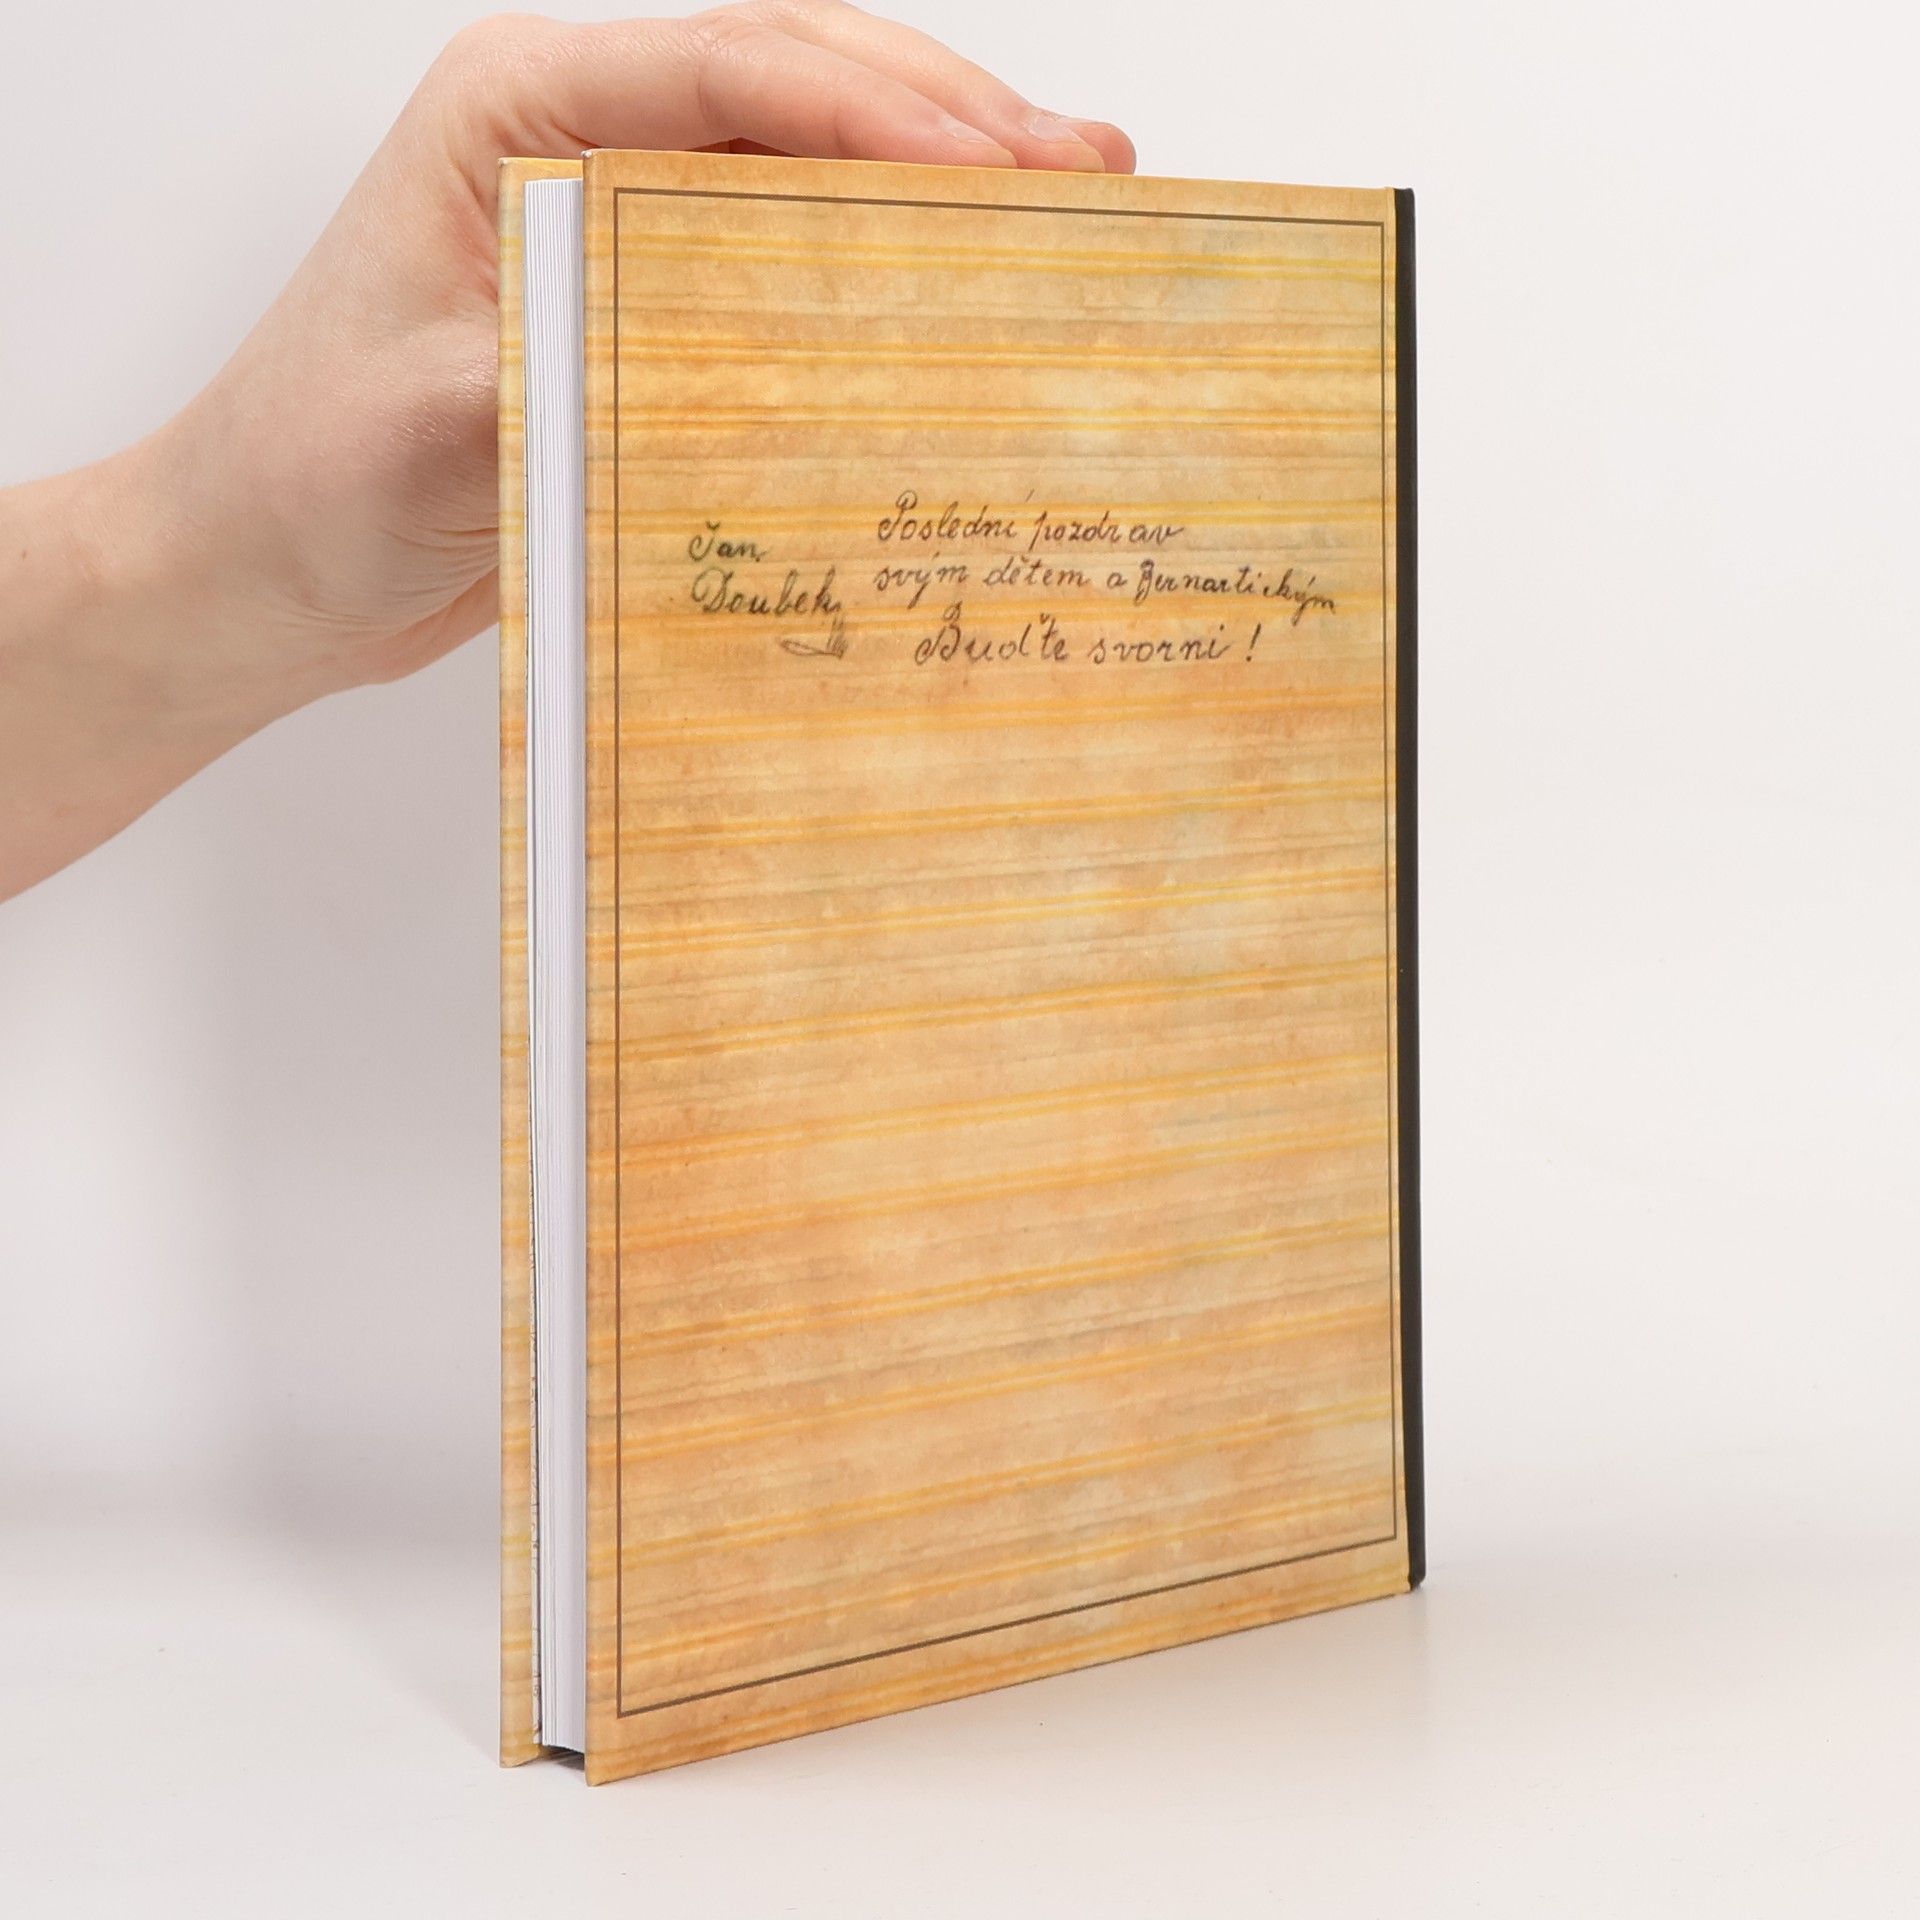 Jan
Doubek
Poslední pozdrav
svým dětem a Bernartickým
Buďte svorni!